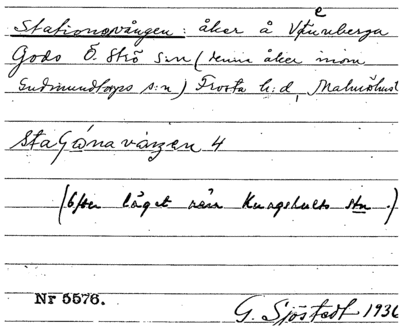 Stationsvången: åker å Vrenberga
Gods Ö. Strö s:n (annan åker inom
Gudmundtorps s:n) Frosta h:d, Malmöhus
(Efter läget nära Kungshults stn.)
Nr 5576.
G. Sjöstedt 1936